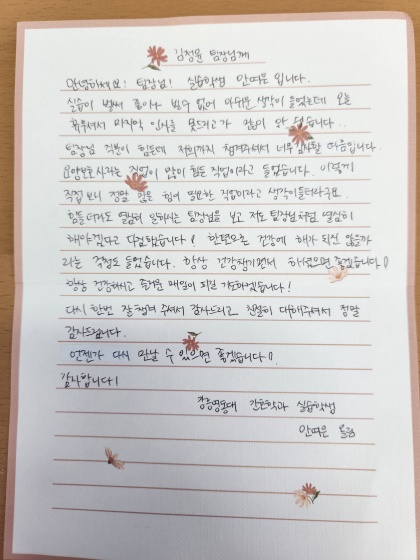 김정윤 팀장님께
안녕하세요! 팀장님! 실습학생 안여은입니다.
실습이 벌써 끝이나 믿을 수 없어 아쉬운 생각이 들었는데 오늘
휴무셔서 마지막 인사를 못드리고가 맘이 안
팀장님 직분이 힘든데 저희까지 챙겨주셔서 너무 감사할 따름입니다
요양보호사라는 직업이 많이 힘든 직업이라고 들었습니다. 이렇게
직접 보니 정말 힘이 필요한 직업이라고 생각이 들더라구요.
힘들더라도 열심히 일하시는 팀장님을 보고 저도 팀장님처럼 열심히
해야겠다고 다짐했습니다! 한편으론 건강에 해가 되진 않을까
라는 걱정도 들었습니다. 항상 건강챙기면서 하셨으면 좋겠습니다!
항상 건강하시고 즐거운 매일이 되길 기도하겠습니다!
다시 한번 잘 챙겨 주셔서 감사드리고 친절히 대해주셔서 정말
감사드립니다.
언젠가 다시 만날 수 있으면 좋겠습니다!
감사합니다!
간호학과 실습학생
안여은 올림